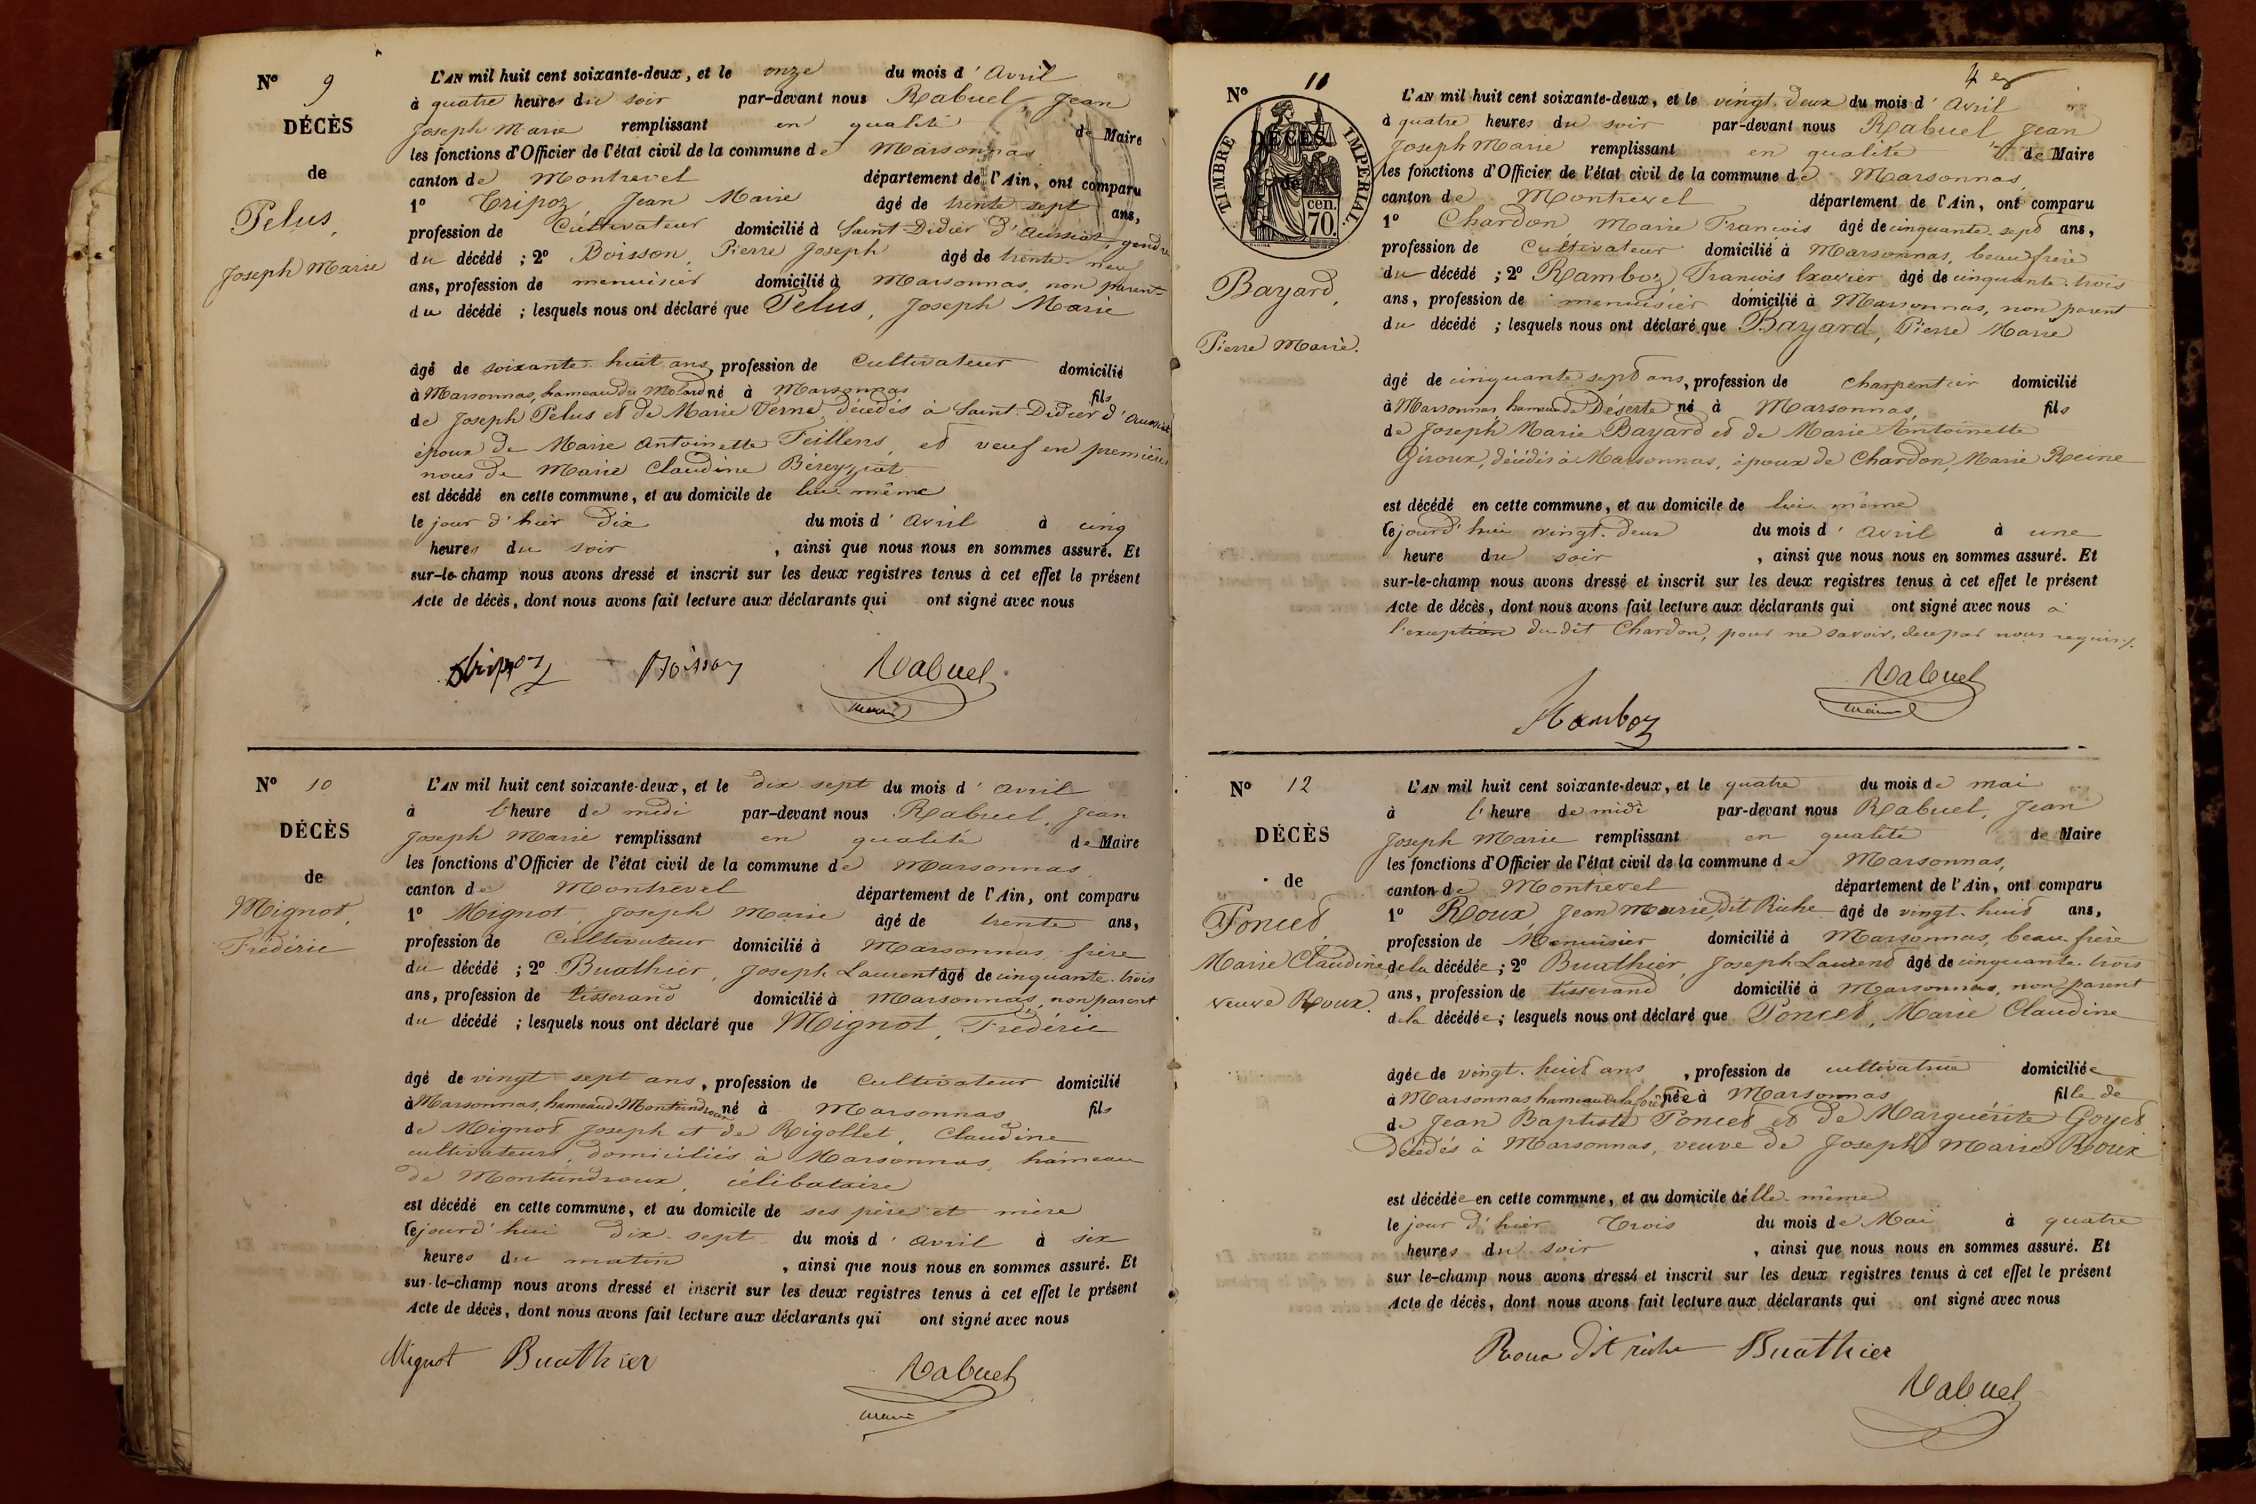 N° 9
DÉCÈS
de
Pelus,
Joseph Marie
L'AN mil huit cent soixante-deux, et le onze du mois d'avril
à quatre heures du soir par-devant nous Rabuel, Jean
Joseph Marie remplissant en qualité de Maire
les fonctions d'Officier de l'état civil de la commune de Marsonnas
canton de Montrevel département de l'Ain, ont comparu
1° Tripoz, Jean Marie âgé de trente sept ans,
profession de Cultivateur domicilié à Saint-Didier d'Aussiat, gendre
du décédé ; 2° Boisson, Pierre Joseph âgé de trente-neuf
ans, profession de menuisier domicilié à Marsonnas, non parent
du décédé ; lesquels nous ont déclaré que Pelus, Joseph Marie
âgé de soixante-huit ans, profession de Cultivateur domicilié
à Marsonnas, hameau du Molard né à Marsonnas fils
de Joseph Pelus et de Marie Verne, décédés à Saint-Didier d'Aussiat
époux de Marie Antoinette Feillens, et veuf en premières
noces de Marie Claudine Béreyziat
est décédé en cette commune, et au domicile de lui-même
le jour d'hier dix du mois d'avril à cinq
heures du soir, ainsi que nous nous en sommes assuré. Et
sur-le-champ nous avons dressé et inscrit sur les deux registres tenus à cet effet le présent
Acte de décès, dont nous avons fait lecture aux déclarants qui ont signé avec nous
Tripoz Boisson Rabuel
maire
N° 10
DÉCÈS
de
Mignot,
Frédéric
L'AN mil huit cent soixante-deux, et le dix sept du mois d'avril
à l'heure de midi par-devant nous Rabuel, Jean
Joseph Marie remplissant en qualité de Maire
les fonctions d'Officier de l'état civil de la commune de Marsonnas
canton de Montrevel département de l'Ain, ont comparu
1° Mignot, Joseph Marie âgé de trente ans,
profession de Cultivateur domicilié à Marsonnas, frère
du décédé ; 2° Buathier, Joseph Laurent âgé de cinquante-trois
ans, profession de tisserand domicilié à Marsonnas, non parent
du décédé ; lesquels nous ont déclaré que Mignot, Frédéric
âgé de vingt-sept ans, profession de Cultivateur domicilié
à Marsonnas, hameau de né à Marsonnas fils
de Mignot Joseph et de Rigollet, Claudine
cultivateurs, domiciliés à Marsonnas, hameau
de célibataire
est décédé en cette commune, et au domicile de ses père et mère
cejourd'hui dix-sept du mois d'avril à six
heures du matin, ainsi que nous nous en sommes assuré. Et
sur-le-champ nous avons dressé et inscrit sur les deux registres tenus à cet effet le présent
Acte de décès, dont nous avons fait lecture aux déclarants qui ont signé avec nous
Mignot Buathier Rabuel
maire
4 e
N° 11
TIMBRE IMPÉRIAL
cen. 70.
DÉCÈS
de
Bayard,
Pierre Marie.
L'AN mil huit cent soixante-deux, et le vingt-deux du mois d'avril
à quatre heures du soir par-devant nous Rabuel, Jean
Joseph Marie remplissant en qualité de Maire
les fonctions d'Officier de l'état civil de la commune de Marsonnas,
canton de Montrevel département de l'Ain, ont comparu
1° Chardon Marie François âgé de cinquante-sept ans,
profession de Cultivateur domicilié à Marsonnas, beau frère
du décédé ; 2° Ramboz, François Xavier âgé de cinquante-trois
ans, profession de menuisier domicilié à Marsonnas, non parent
du décédé ; lesquels nous ont déclaré que Bayard, Pierre Marie
âgé de cinquante sept ans, profession de charpentier domicilié
à Marsonnas, hameau de Déserte né à Marsonnas, fils
de Joseph Marie Bayard et de Marie Antoinette
Giroux, décédés à Marsonnas, époux de Chardon, Marie Reine
est décédé en cette commune, et au domicile de lui-même
cejourd'hui vingt-deux du mois d'avril à une
heure du soir, ainsi que nous nous en sommes assuré. Et
sur-le-champ nous avons dressé et inscrit sur les deux registres tenus à cet effet le présent
Acte de décès, dont nous avons fait lecture aux déclarants qui ont signé avec nous à
l'exception du dit Chardon, pour ne savoir, de ce par nous requis.
Ramboz Rabuel
maire
N° 12
DÉCÈS
de
Poncet
Marie Claudine
veuve Roux.
L'AN mil huit cent soixante-deux, et le quatre du mois de mai
à l'heure de midi par-devant nous Rabuel, Jean
Joseph Marie remplissant en qualité de Maire
les fonctions d'Officier de l'état civil de la commune de Marsonnas,
canton de Montrevel département de l'Ain, ont comparu
1° Roux, Jean Marie dit Riche âgé de vingt-huit ans,
profession de Menuisier domicilié à Marsonnas, beau-frère
de la décédée ; 2° Buathier, Joseph Laurent âgé de cinquante-trois
ans, profession de tisserand domicilié à Marsonnas, non parent
de la décédée ; lesquels nous ont déclaré que Poncet, Marie Claudine
âgée de vingt-huit ans, profession de cultivatrice domiciliée
à Marsonnas hameau de la née à Marsonnas fille de
de Jean Baptiste Poncet et de Marguérite Goyet
décédés à Marsonnas, veuve de Joseph Marie Roux
est décédée en cette commune, et au domicile d'elle-même
le jour d'hier Trois du mois de Mai à quatre
heures du soir, ainsi que nous nous en sommes assuré. Et
sur le-champ nous avons dressé et inscrit sur les deux registres tenus à cet effet le présent
Acte de décès, dont nous avons fait lecture aux déclarants qui ont signé avec nous
Roux dit riche Buathier
Rabuel